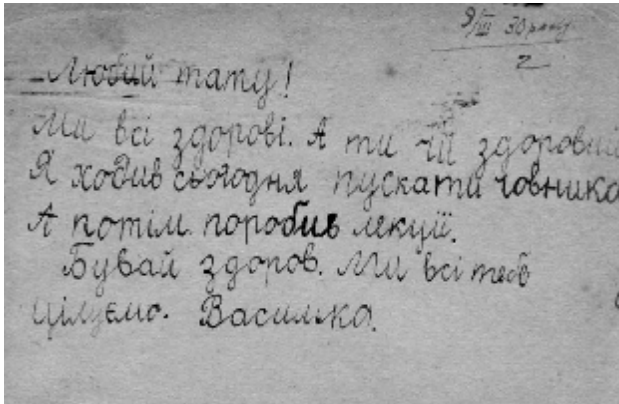 9/III 30 року
2
Любий тату!
Ми всі здорові. А ти чи здоровий
Я ходив сьогодня пускати човника
А потім поробив лекції.
Бувай здоров. Ми всі тебе
цілуємо. Василько.